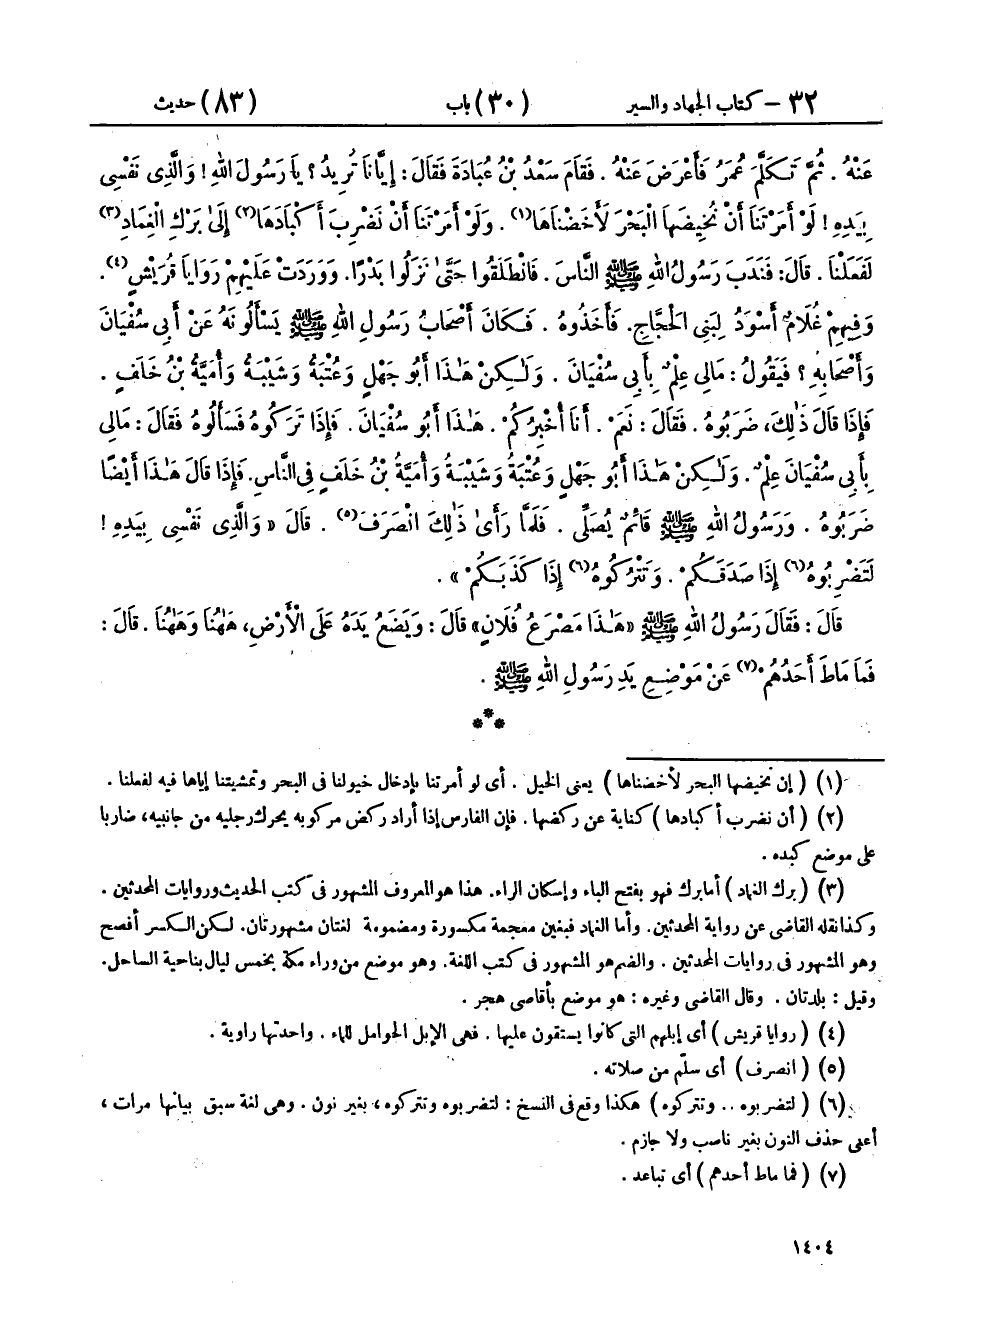 ٣٢ – كتاب الجهاد والسير (٣٠) باب (٨٣) حديث
عَنْهُ. ثُمَّ تَكَلَّمَ عُمَرُ فَأَعْرَضَ عَنْهُ. فَقَامَ سَعْدُ بْنُ عُبَادَةَ فَقَالَ: إِيَّانَا تُرِيدُ؟ يَا رَسُولَ اللهِ! وَالَّذِى نَفْسِى
بِيَدِهِ! لَوْ أَمَرْتَنَا أَنْ نُخِيضَهَا الْبَحْرَ لَأَخَضْنَاهَا(١). وَلَوْ أَمَرْتَنَا أَنْ نَضْرِبَ أَكْبَادَهَا(٢) إِلَىٰ بَرْكِ الْغِمَادِ(٣)
لَفَعَلْنَا. قَالَ: فَنَدَبَ رَسُولُ اللهِ ﷺ النَّاسَ. فَانْطَلَقُوا حَتَّىٰ نَزَلُوا بَدْرًا. وَوَرَدَتْ عَلَيْهِمْ رَوَايَا قُرَيْشٍ(٤).
وَفِيهِمْ غُلَامٌ أَسْوَدُ لِبَنِى الْحَجَّاجِ. فَأَخَذُوهُ. فَكَانَ أَصْحَابُ رَسُولِ اللهِ ﷺ يَسْأَلُونَهُ عَنْ أَبِى سُفْيَانَ
وَأَصْحَابِهِ؟ فَيَقُولُ: مَالِى عِلْمٌ بِأَبِى سُفْيَانَ. وَلَٰكِنْ هَٰذَا أَبُو جَهْلٍ وَعُتْبَةُ وَشَيْبَةُ وَأُمَيَّةُ بْنُ خَلَفٍ.
فَإِذَا قَالَ ذَٰلِكَ، ضَرَبُوهُ. فَقَالَ: نَعَمْ. أَنَا أُخْبِرُكُمْ. هَٰذَا أَبُو سُفْيَانَ. فَإِذَا تَرَكُوهُ فَسَأَلُوهُ فَقَالَ: مَالِى
بِأَبِى سُفْيَانَ عِلْمٌ. وَلَٰكِنْ هَٰذَا أَبُو جَهْلٍ وَعُتْبَةُ وَشَيْبَةُ وَأُمَيَّةُ بْنُ خَلَفٍ فِى النَّاسِ. فَإِذَا قَالَ هَٰذَا أَيْضًا
ضَرَبُوهُ. وَرَسُولُ اللهِ ﷺ قَائِمٌ يُصَلِّى. فَلَمَّا رَأَىٰ ذَٰلِكَ انْصَرَفَ(٥). قَالَ «وَالَّذِى نَفْسِى بِيَدِهِ!
لَتَضْرِبُوهُ(٦) إِذَا صَدَقَكُمْ. وَتَتْرُكُوهُ(٦) إِذَا كَذَبَكُمْ».
قَالَ: فَقَالَ رَسُولُ اللهِ ﷺ «هَٰذَا مَصْرَعُ فُلَانٍ» قَالَ: وَيَضَعُ يَدَهُ عَلَى الْأَرْضِ، هَٰهُنَا وَهَٰهُنَا. قَالَ:
فَمَا مَاطَ أَحَدُهُمْ(٧) عَنْ مَوْضِعِ يَدِ رَسُولِ اللهِ ﷺ.
***
(١) (إن نخيضها البحر لأخضناها) يعنى الخيل. أى لو أمرتنا بإدخال خيولنا فى البحر وتمشيتنا إياها فيه لفعلنا.
(٢) (أن نضرب أكبادها) كناية عن ركضها. فإن الفارس إذا أراد ركض مركوبه يحرك رجليه من جانبيه، ضاربا
على موضع كبده.
(٣) (برك الغماد) أما برك فهو بفتح الباء وإسكان الراء. هذا هو المعروف المشهور فى كتب الحديث وروايات المحدثين.
وكذا نقله القاضى عن رواية المحدثين. وأما الغماد فبغين معجمة مكسورة ومضمومة لغتان مشهورتان. لكن الكسر أفصح
وهو المشهور فى روايات المحدثين. والضم هو المشهور فى كتب اللغة. وهو موضع من وراء مكة بخمس ليال بناحية الساحل.
وقيل: بلدتان. وقال القاضى وغيره: هو موضع بأقاصى هجر.
(٤) (روايا قريش) أى إبلهم التى كانوا يستقون عليها. فهى الإبل الحوامل للماء. واحدتها راوية.
(٥) (انصرف) أى سلّم من صلاته.
(٦) (لتضربوه.. وتتركوه) هكذا وقع فى النسخ: لتضربوه وتتركوه، بغير نون. وهى لغة سبق بيانها مرات،
أعنى حذف النون بغير ناصب ولا جازم.
(٧) (فما ماط أحدهم) أى تباعد.
١٤٠٤